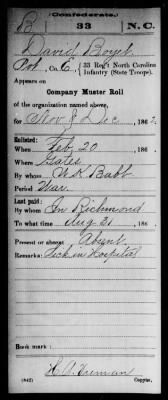 Confederate.
B 33 N.C.
David Boyet
Pvt. Co. E, 33 Reg't North Carolina
Infantry (State Troops).
Appears on
Company Muster Roll
of the organization named above,
for Nov & Dec, 186
Enlisted:
When Feb 20, 186
Where Gates
By whom W. K. Babb
Period War.
Last paid:
By whom In Richmond
To what time Aug 31, 186
Present or absent Absent
Remarks: Sick in Hospital
Book mark:
(642) Copyist.